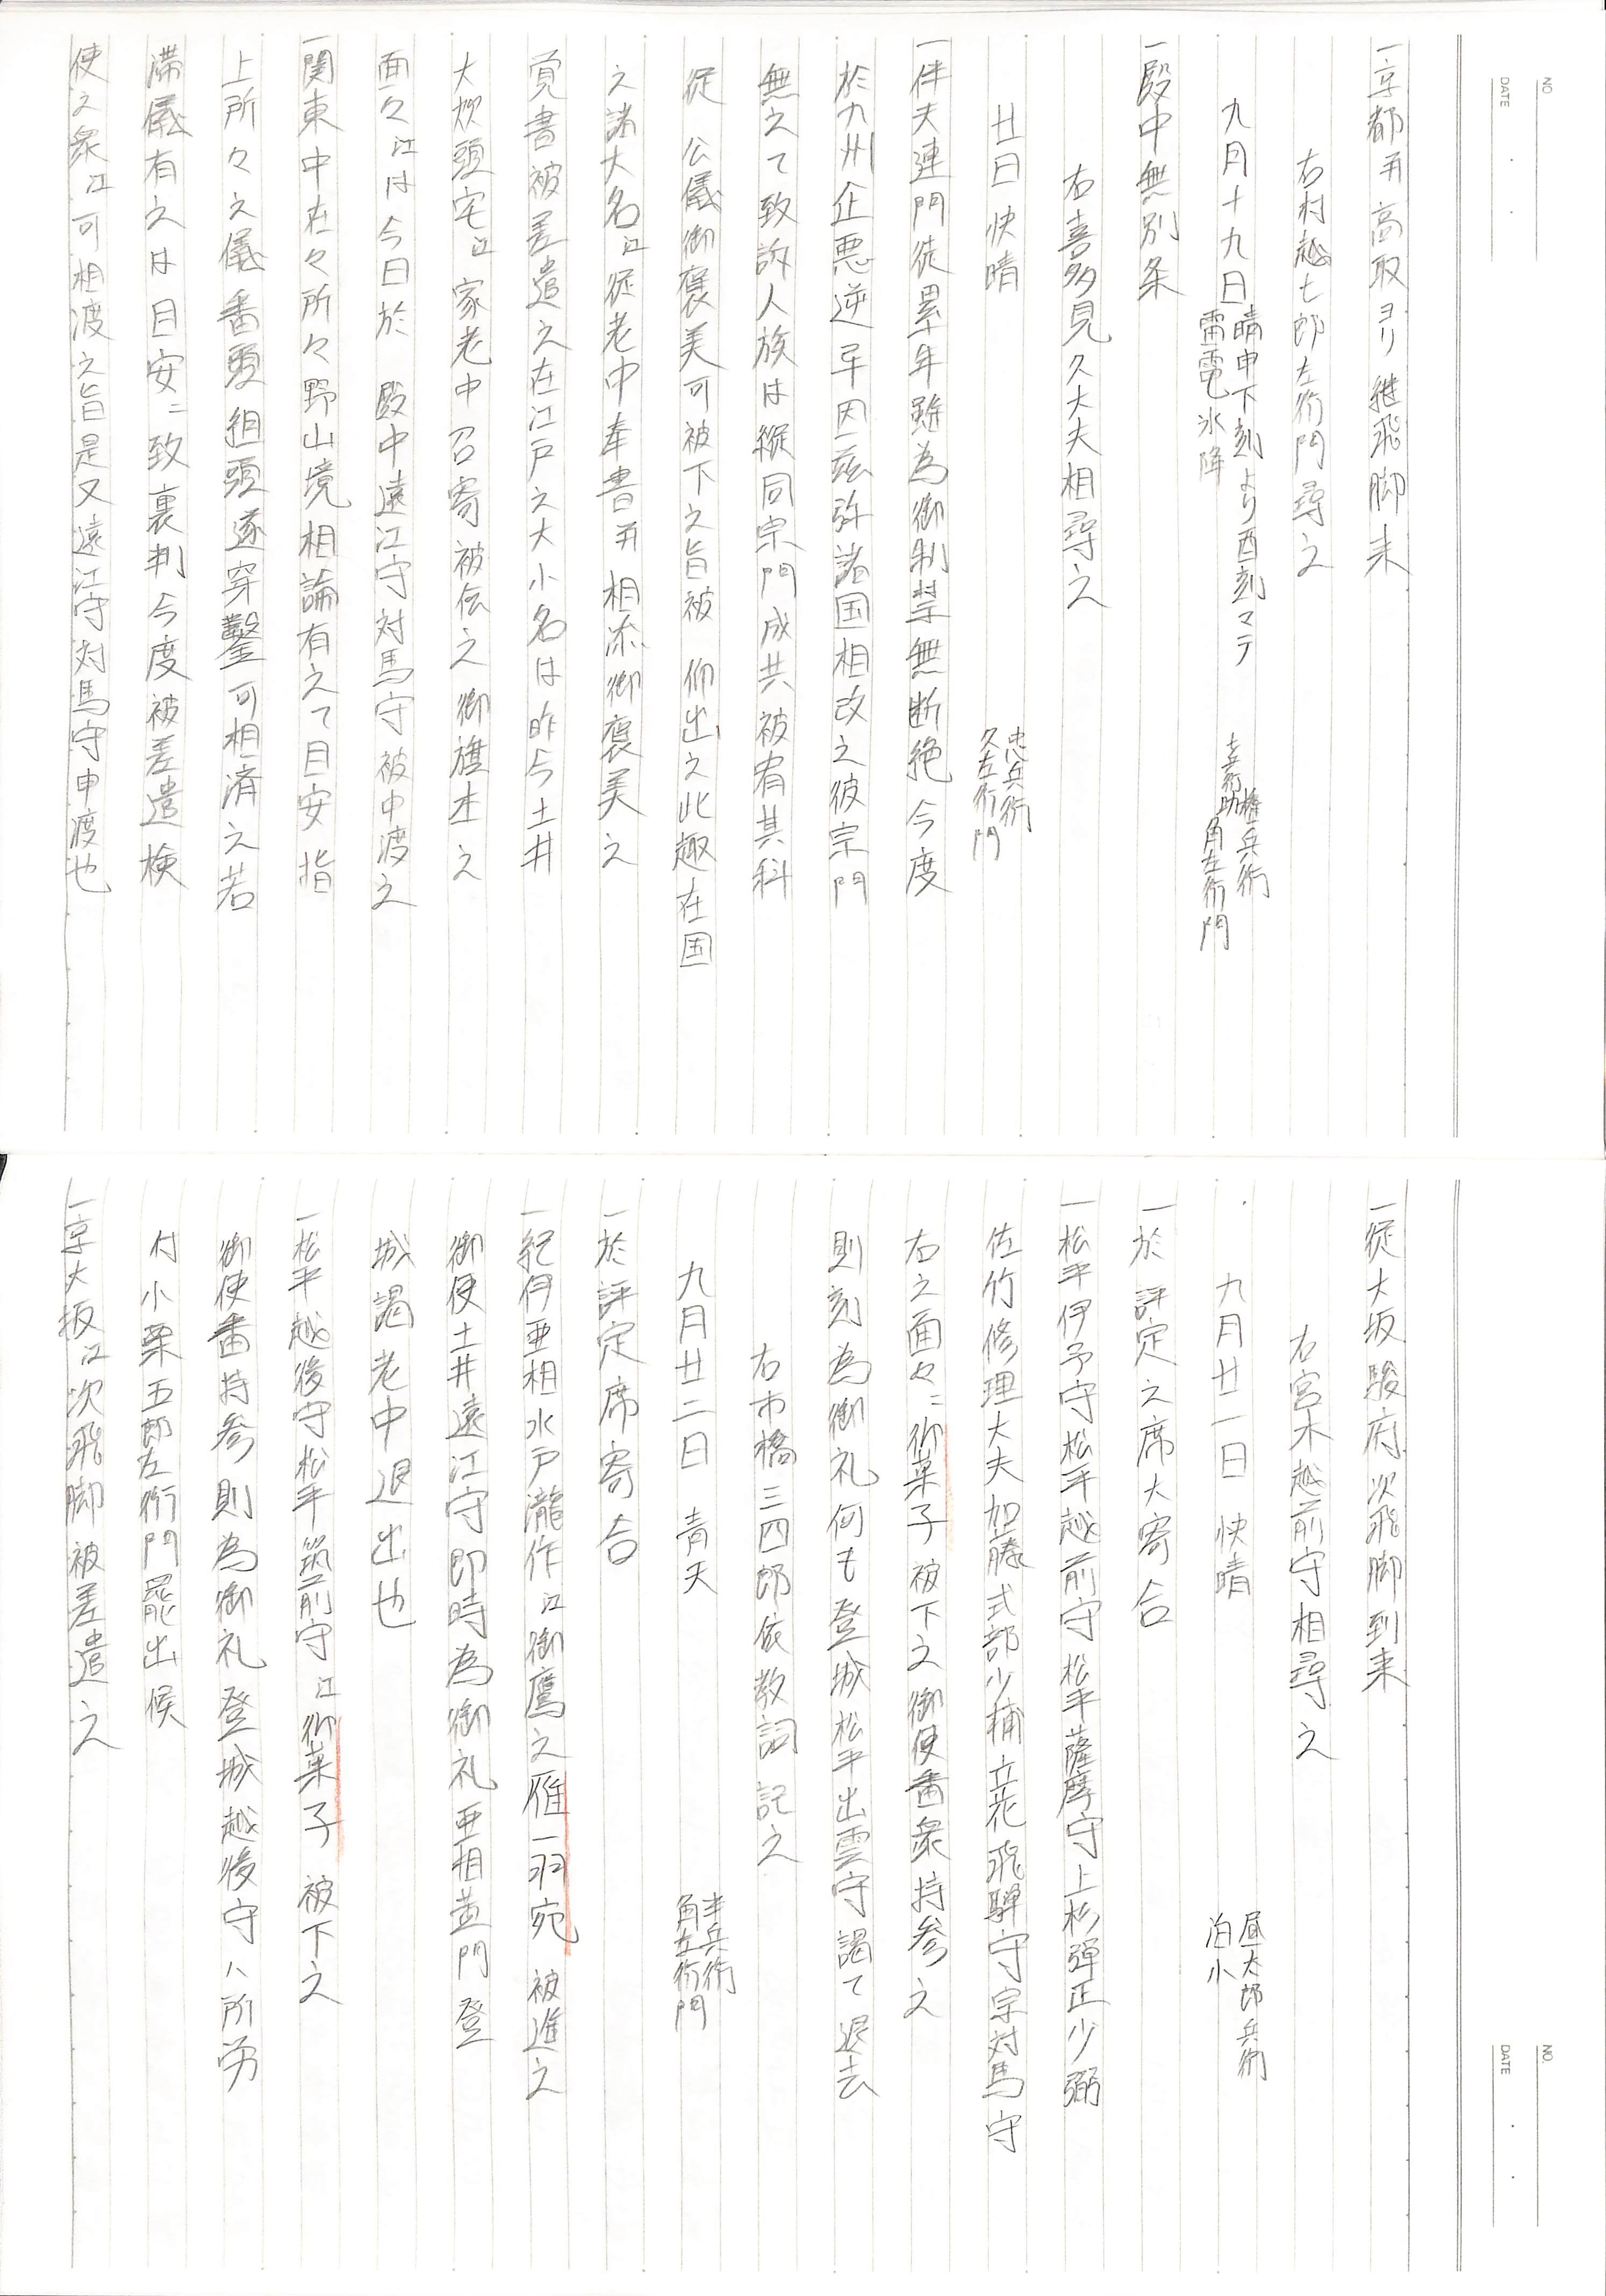 NO.
DATE
一京都并高取ヨリ継飛脚来
右村越七郎左衛門尋之
九月十九日 晴申下刻より酉刻マテ
雷電氷降
権兵衛
角左衛門
一殿中無別条
右喜多見久大夫相尋之
廿日 快晴
忠兵衛
久左衛門
一伴天連門徒累年雖為御制禁無断絶今度
於九州企悪逆早因茲弥諸国相改之彼宗門
無之て致訴人族は縦同宗門成共被宥其科
従 公儀御褒美可被下之旨被 仰出之此趣在国
之諸大名江従老中奉書并相添御褒美之
覚書被差遣之在江戸之大小名は昨今土井
大炊頭宅江家老中召寄被伝之御旗本之
面々江は今日於 殿中遠江守対馬守被申渡之
一関東中在々所々野山境相論有之て目安指
上所々之儀番頭組頭遂穿鑿可相済之若
滞儀有之は目安ニ致裏判今度被差遣検
使之衆江可相渡之旨是又遠江守対馬守申渡也
NO.
DATE
一従大坂駿府次飛脚到来
右宮木越前守相尋之
九月廿一日 快晴
昼太郎兵衛
泊小
一於評定之席大寄合
一松平伊予守松平越前守松平薩摩守上杉弾正少弼
佐竹修理大夫加藤式部少輔立花飛騨守宗対馬守
右之面々ニ御菓子被下之御使番衆持参之
則刻為御礼何も登城松平出雲守謁て退去
右市橋三四郎依教詞記之
九月廿二日 青天
半兵衛
角左衛門
一於評定席寄合
一紀伊亜相水戸瀧作江御鷹之雁一羽宛被進之
御使土井遠江守即時為御礼亜相黄門登
城謁老中退出也
一松平越後守松平筑前守江御菓子被下之
御使番持参則為御礼登城越後守ハ所労
付小栗五郎左衛門罷出候
一京大坂江次飛脚被差遣之